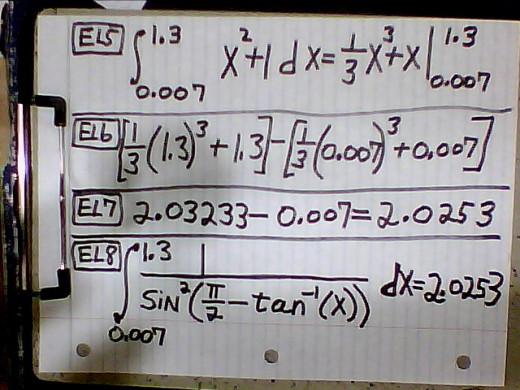 EL5 ∫_{0.007}^{1.3} x²+1 dx = 1/3 x³+x |_{0.007}^{1.3}
EL6 [1/3(1.3)³+1.3]-[1/3(0.007)³+0.007]
EL7 2.03233-0.007=2.0253
EL8 ∫_{0.007}^{1.3} 1/sin²(π/2-tan⁻¹(x)) dx=2.0253